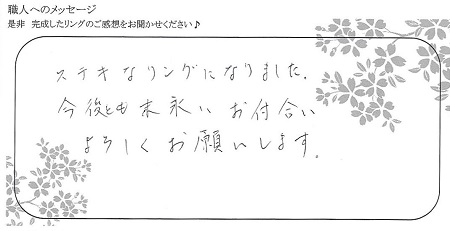 職人へのメッセージ
是非 完成したリングのご感想をお聞かせください♪
ステキなリングになりました.
今後とも末永いお付合い
よろしくお願いします。